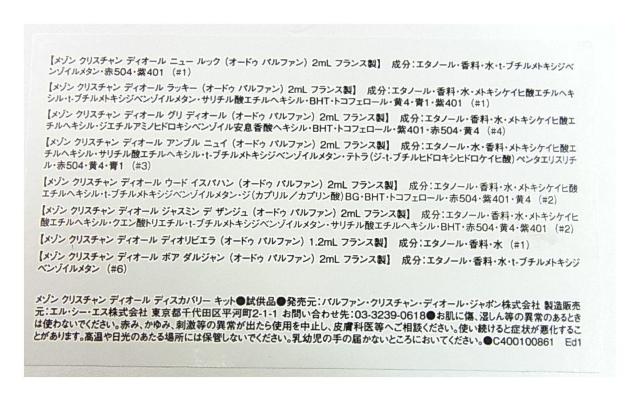 【メゾン クリスチャン ディオール ニュー ルック (オードゥ パルファン) 2mL フランス製】 成分:エタノール・香料・水・t-ブチルメトキシジベ
ンゾイルメタン・赤504・紫401 (#1)
【メゾン クリスチャン ディオール ラッキー (オードゥ パルファン) 2mL フランス製】 成分:エタノール・香料・水・メトキシケイヒ酸エチルヘキ
シル・t-ブチルメトキシジベンゾイルメタン・サリチル酸エチルヘキシル・BHT・トコフェロール・黄4・青1・紫401 (#1)
【メゾン クリスチャン ディオール グリ ディオール (オードゥ パルファン) 2mL フランス製】 成分:エタノール・香料・水・メトキシケイヒ酸エ
チルヘキシル・ジエチルアミノヒドロキシベンゾイル安息香酸ヘキシル・BHT・トコフェロール・紫401・赤504・黄4 (#4)
【メゾン クリスチャン ディオール アンブル ニュイ (オードゥ パルファン) 2mL フランス製】 成分:エタノール・香料・水・メトキシケイヒ酸エチ
ルヘキシル・サリチル酸エチルヘキシル・t-ブチルメトキシジベンゾイルメタン・テトラ(ジ-t-ブチルヒドロキシヒドロケイヒ酸)ペンタエリスリチ
ル・赤504・黄4・青1 (#3)
【メゾン クリスチャン ディオール ウード イスパハン (オードゥ パルファン) 2mL フランス製】 成分:エタノール・香料・水・メトキシケイヒ酸
エチルヘキシル・t-ブチルメトキシジベンゾイルメタン・ジ(カプリル/カプリン酸)BG・BHT・トコフェロール・赤504・紫401・黄4 (#2)
【メゾン クリスチャン ディオール ジャスミン デ ザンジュ (オードゥ パルファン) 2mL フランス製】 成分:エタノール・香料・水・メトキシケイヒ
酸エチルヘキシル・クエン酸トリエチル・t-ブチルメトキシジベンゾイルメタン・サリチル酸エチルヘキシル・BHT・赤504・黄4・紫401 (#2)
【メゾン クリスチャン ディオール ディオリビエラ (オードゥ パルファン) 1.2mL フランス製】 成分:エタノール・香料・水 (#1)
【メゾン クリスチャン ディオール ボア ダルジャン (オードゥ パルファン) 2mL フランス製】 成分:エタノール・香料・水・t-ブチルメトキシジ
ベンゾイルメタン (#6)
メゾン クリスチャン ディオール ディスカバリー キット●試供品●発売元:パルファン・クリスチャン・ディオール・ジャポン株式会社 製造販売
元:エル・シー・エス株式会社 東京都千代田区平河町2-1-1 お問い合わせ先:03-3239-0618●お肌に傷、湿しん等の異常のあるとき
は使わないでください。赤み、かゆみ、刺激等の異常が出たら使用を中止し、皮膚科医等へご相談ください。使い続けると症状が悪化するこ
とがあります。高温や日光のあたる場所には保管しないでください。乳幼児の手の届かないところにおいてください。●C400100861 Ed1